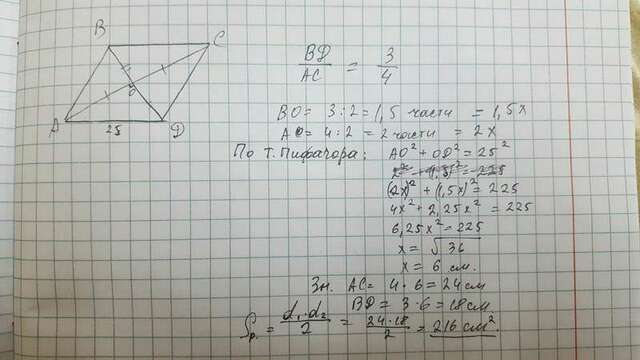 B C
O
A 25 D
BD/AC = 3/4
BO = 3:2 = 1,5 части = 1,5x
AO = 4:2 = 2 части = 2x
По т. Пифагора: AO² + OD² = 25²
(2x)² + (1,5x)² = 225
4x² + 2,25x² = 225
6,25x² = 225
x = √36
x = 6 см.
Зн. AC = 4·6 = 24 см
BD = 3·6 = 18 см
Sр. = d₁·d₂/2 = 24·18/2 = 216 см².